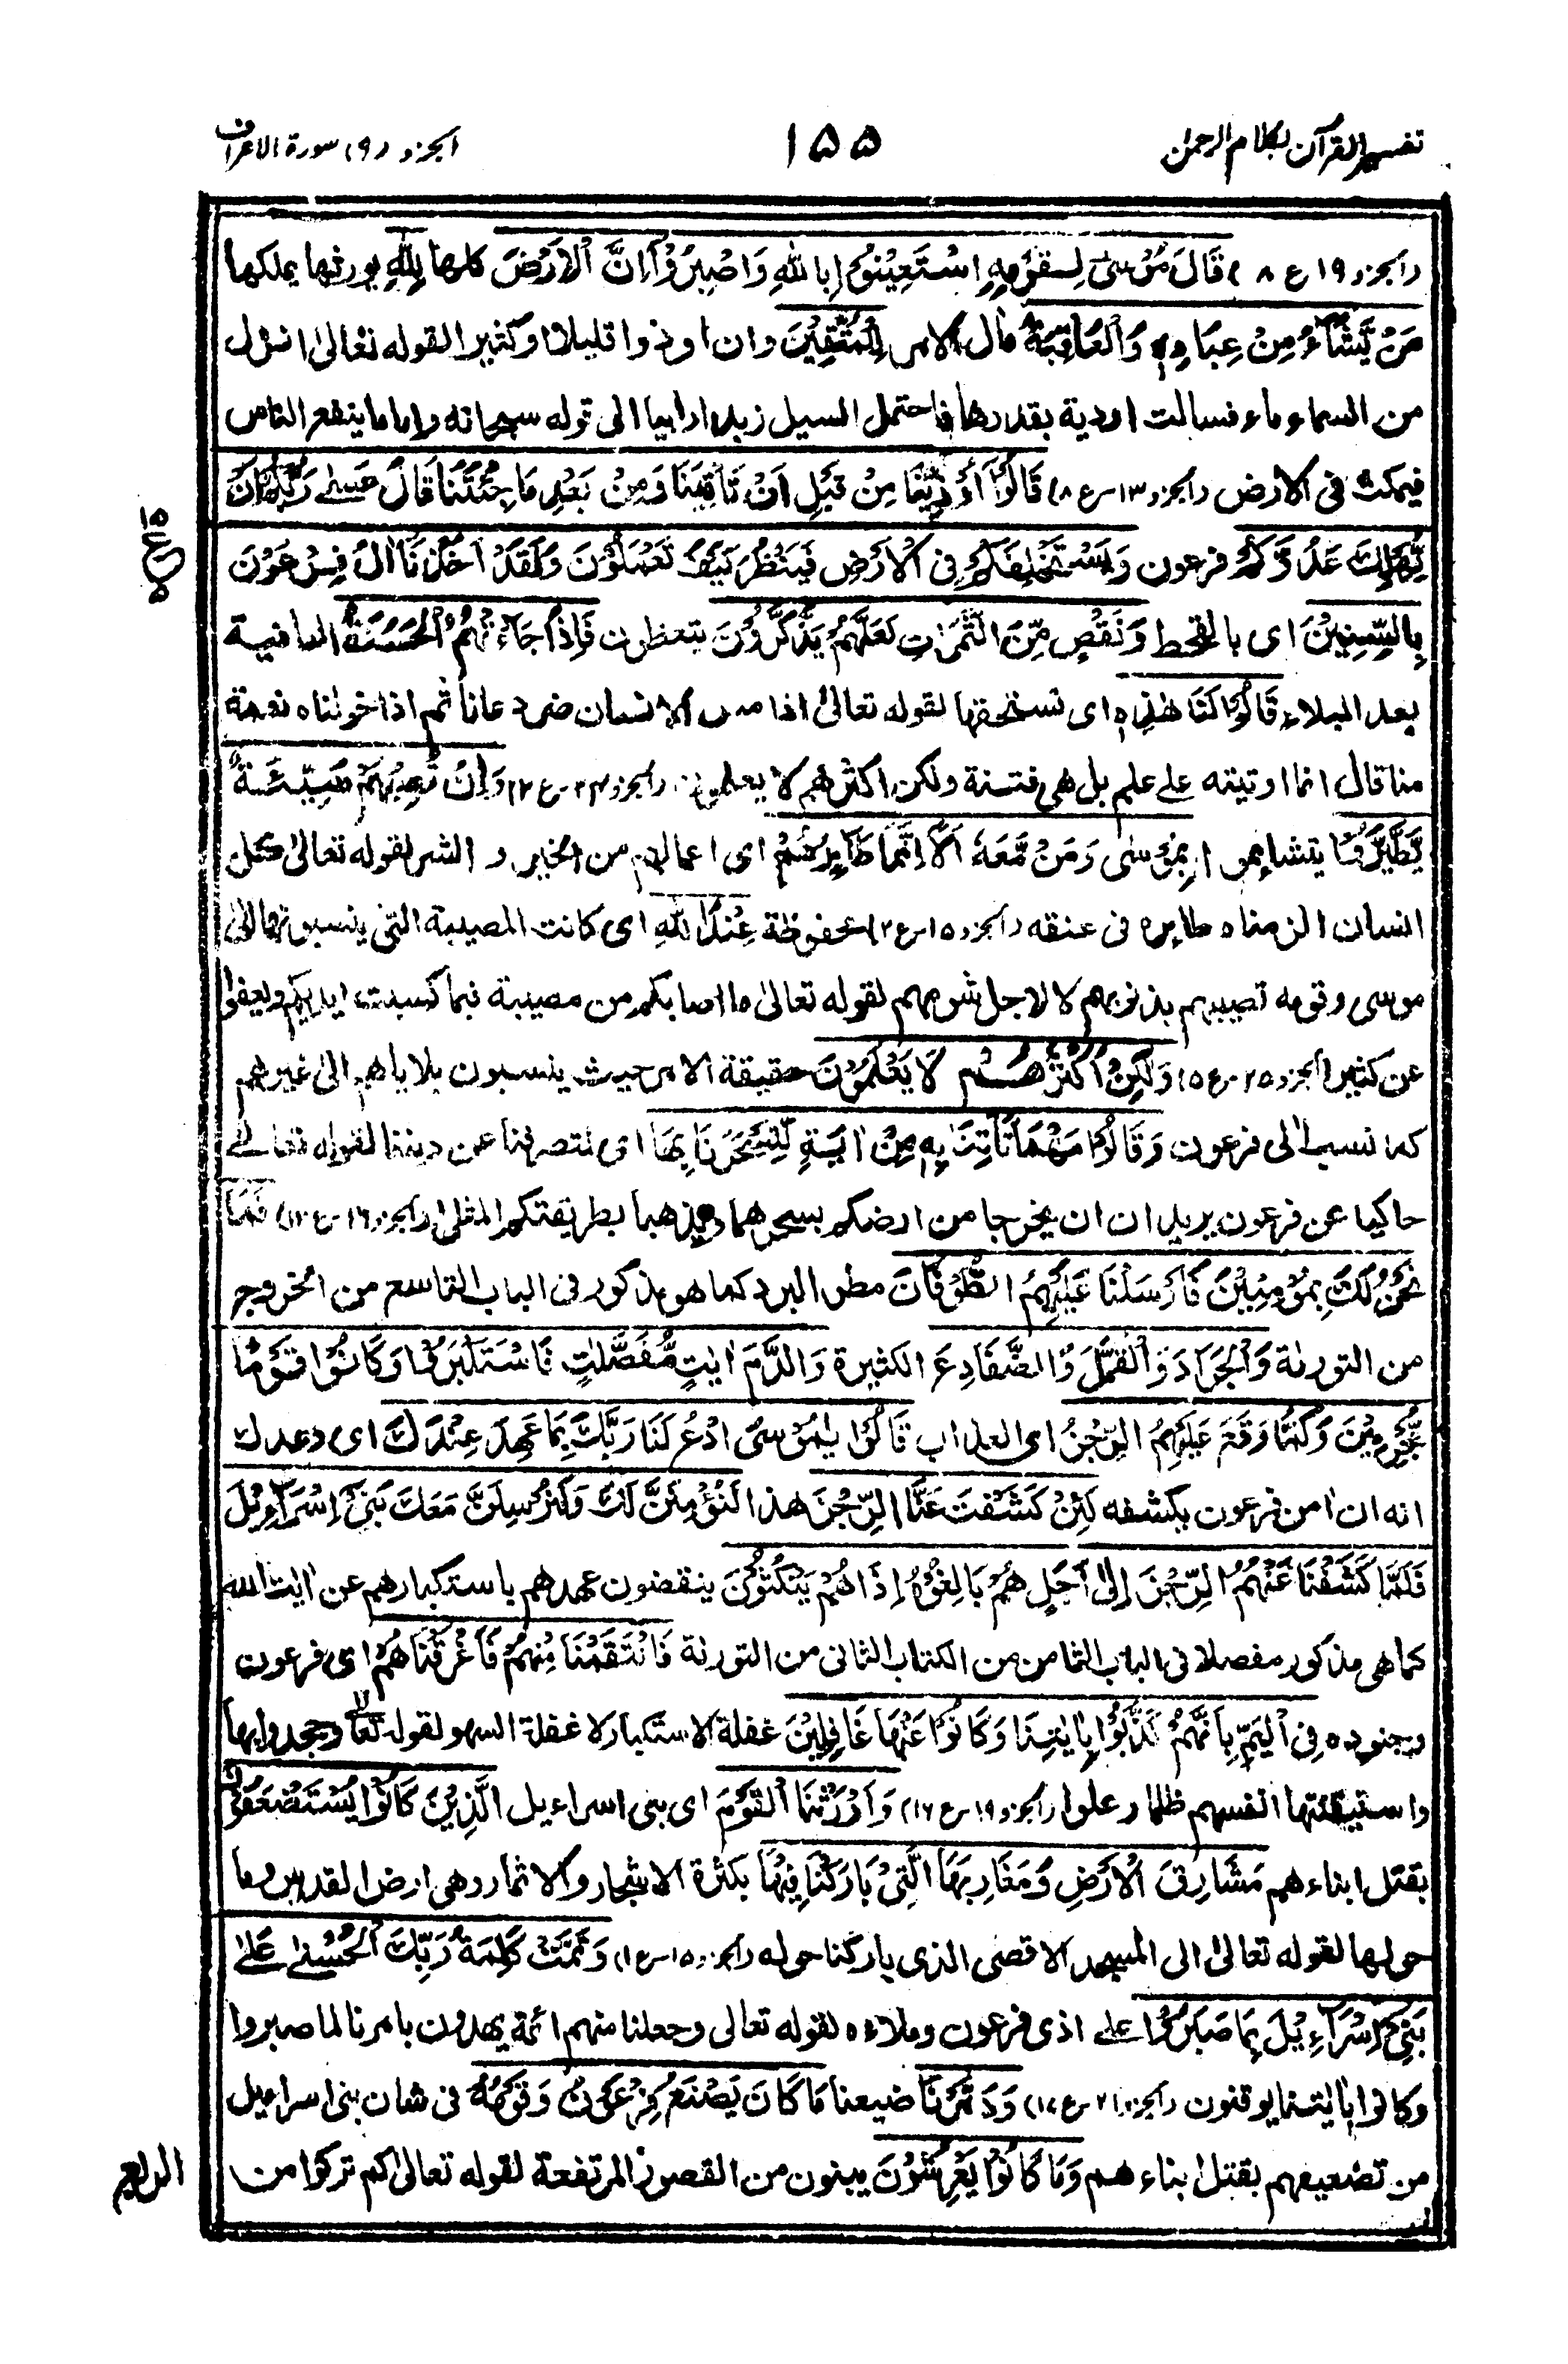 تفسير القرآن بكلام الرحمن
١٥٥
الجزو (٩) سورة الاعراف
(الجزو ١٩ ع ٨) قَالَ مُوْسٰى لِقَوْمِهِ اسْتَعِيْنُوْا بِاللهِ وَاصْبِرُوْا اِنَّ الْاَرْضَ كلها لِلّٰهِ يورثها يملكها
مَنْ يَّشَآءُ مِنْ عِبَادِهٖ وَالْعَاقِبَةُ مآل الامر لِلْمُتَّقِيْنَ وان اوذوا قليلا او كثيرا لقوله تعالىٰ انزل
من السماء ماء فسالت اودية بقدرها فاحتمل السيل زبدا رابيا الى قوله سبحانه واما ما ينفع الناس
فيمكث فى الارض (الجزو ١٣-ع ٨) قَالُوْٓا اُوْذِيْنَا مِنْ قَبْلِ اَنْ تَاْتِيَنَا وَمِنْ بَعْدِ مَا جِئْتَنَا قَالَ عَسٰى رَبُّكُمْ اَنْ
يُّهْلِكَ عَدُوَّكُمْ فرعون وَيَسْتَخْلِفَكُمْ فِى الْاَرْضِ فَيَنْظُرَ كَيْفَ تَعْمَلُوْنَ وَلَقَدْ اَخَذْنَآ اٰلَ فِرْعَوْنَ
بِالسِّنِيْنَ اى بالقحط وَنَقْصٍ مِّنَ الثَّمَرَاتِ لَعَلَّهُمْ يَذَّكَّرُوْنَ يتعظون فَاِذَا جَآءَتْهُمُ الْحَسَنَةُ العافية
بعد البلاء قَالُوْا لَنَا هٰذِهٖ اى نستحقها لقوله تعالىٰ اذا مس الانسان ضر دعانا ثم اذا خولناه نعمة
منا قال انما اوتيته على علم بل هى فتنة ولكن اكثرهم لا يعلمون (الجزو ٢٤-ع ٢) وَاِنْ تُصِبْهُمْ سَيِّئَةٌ
يَطَّيَّرُوْا يتشاءموا بِمُوْسٰى وَمَنْ مَّعَهٗ اَلَآ اِنَّمَا طَآئِرُهُمْ اى اعمالهم من الخير و الشر لقوله تعالىٰ كل
انسان الزمناه طايره فى عنقه (الجزو ١٥-ع ٢) محفوظة عِنْدَ اللهِ اى كانت المصيبة التى ينسبونها الىٰ
موسى وقومه تصيبهم بذنوبهم لا لاجل شومهم لقوله تعالىٰ ما اصابكم من مصيبة فبما كسبت ايديكم ويعفوا
عن كثير (الجزو ٢٥-ع ٥) وَلٰكِنَّ اَكْثَرَهُمْ لَا يَعْلَمُوْنَ حقيقة الامر حيث ينسبون بلاياهم الى غيرهم
كما نسب الى فرعون وَقَالُوْا مَهْمَا تَاْتِنَا بِهٖ مِنْ اٰيَةٍ لِّتَسْحَرَنَا بِهَا اى لتصرفنا عن ديننا لقوله تعالى
حاكيا عن فرعون يريدان ان يخرجا من ارضكم بسحرهما ويذهبا بطريقتكم المثلى (الجزو ١٦-ع ١٢) فَمَا
نَحْنُ لَكَ بِمُؤْمِنِيْنَ فَاَرْسَلْنَا عَلَيْهِمُ الطُّوْفَانَ مطر البرد كما هو مذكور فى الباب التاسع من الخروج
من التورىٰة وَالْجَرَادَ وَالْقُمَّلَ وَالضَّفَادِعَ الكثيرة وَالدَّمَ اٰيٰتٍ مُّفَصَّلٰتٍ فَاسْتَكْبَرُوْا وَكَانُوْا قَوْمًا
مُّجْرِمِيْنَ وَلَمَّا وَقَعَ عَلَيْهِمُ الرِّجْزُ اى العذاب قَالُوْا يٰمُوْسَى ادْعُ لَنَا رَبَّكَ بِمَا عَهِدَ عِنْدَكَ اى وعدك
انه ان اٰمن فرعون يكشفه لَئِنْ كَشَفْتَ عَنَّا الرِّجْزَ هذا لَنُؤْمِنَنَّ لَكَ وَلَنُرْسِلَنَّ مَعَكَ بَنِىْٓ اِسْرَآءِيْلَ
فَلَمَّا كَشَفْنَا عَنْهُمُ الرِّجْزَ اِلٰٓى اَجَلٍ هُمْ بَالِغُوْهُ اِذَا هُمْ يَنْكُثُوْنَ ينقضون عهدهم باستكبارهم عن اٰيٰت الله
كما هى مذكور مفصلا فى الباب الثامن من الكتاب الثانى من التورىٰة فَانْتَقَمْنَا مِنْهُمْ فَاَغْرَقْنَاهُمْ اى فرعون
وجنوده فِى الْيَمِّ بِاَنَّهُمْ كَذَّبُوْا بِاٰيٰتِنَا وَكَانُوْا عَنْهَا غَافِلِيْنَ غفلة الاستكبار لا غفلة السهو لقوله تعالىٰ وجحدوا بها
واستيقنتها انفسهم ظلما وعلوا (الجزو ١٩-ع ١٦) وَاَوْرَثْنَا الْقَوْمَ اى بنى اسراءيل الَّذِيْنَ كَانُوْا يُسْتَضْعَفُوْنَ
بقتل ابناءهم مَشَارِقَ الْاَرْضِ وَمَغَارِبَهَا الَّتِىْ بَارَكْنَا فِيْهَا بكثرة الاشجار والاثمار وهى ارض القدس وما
حولها لقوله تعالىٰ الى المسجد الاقصى الذى باركنا حوله (الجزو ١٥-ع ١) وَتَمَّتْ كَلِمَةُ رَبِّكَ الْحُسْنٰى عَلٰى
بَنِىْٓ اِسْرَآءِيْلَ بِمَا صَبَرُوْا على اذى فرعون وملاءه لقوله تعالى وجعلنا منهم ائمة يهدون بامرنا لما صبروا
وكانوا باٰيٰتنا يوقنون (الجزو ٢١-ع ١٦) وَدَمَّرْنَا ضيعنا مَا كَانَ يَصْنَعُ فِرْعَوْنُ وَقَوْمُهٗ فى شان بنى اسراءيل
من تضعيفهم بقتل ابناءهم وَمَا كَانُوْا يَعْرِشُوْنَ يبنون من القصور المرتفعة لقوله تعالىٰ كم تركوا من
الربع